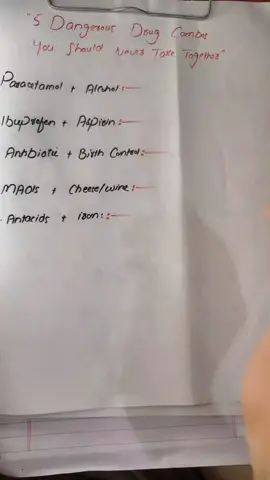 "5 Dangerous Drug Combs
You Should Never Take Together"
Paracetamol + Alcohol:—
Ibuprofen + Aspirin:—
Antibiotic + Birth Control:—
MAOIs + Cheese/wine:—
Antacids + iron::—